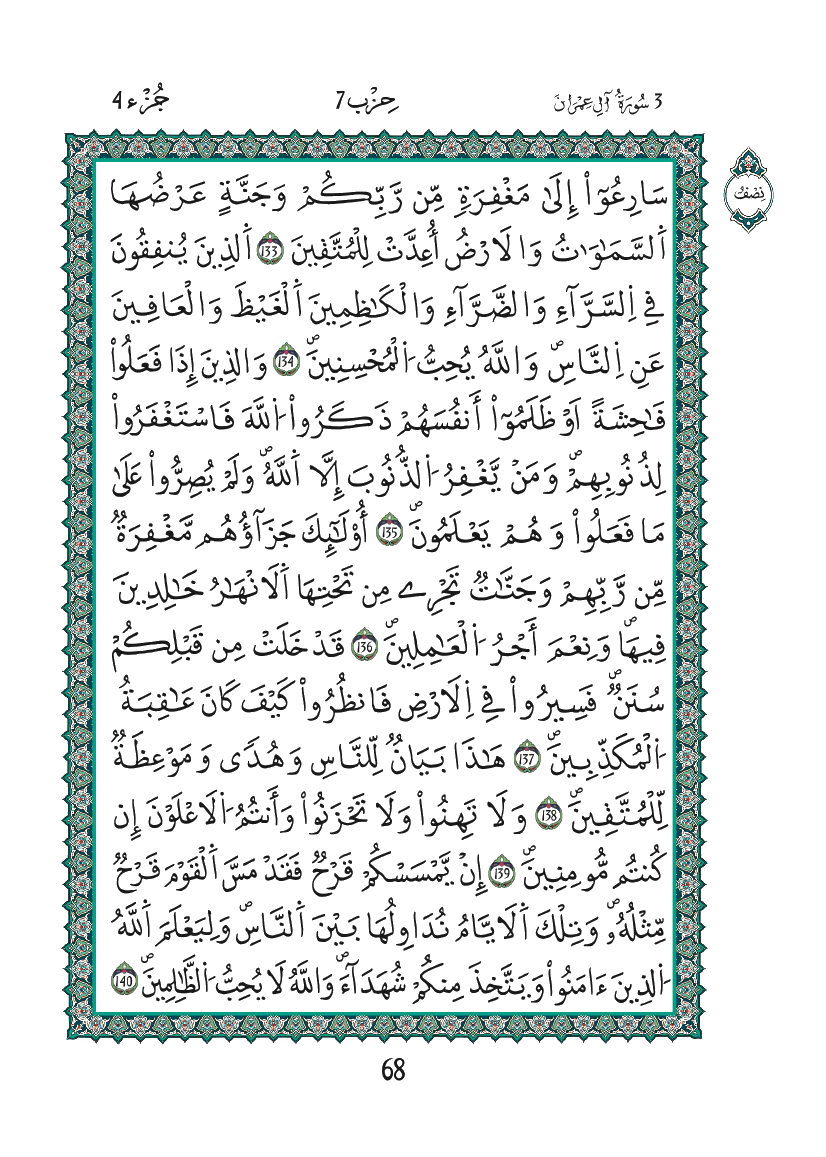 3 سُورَةُ آلِ عِمْرَانَ
حِزْب 7
جُزْء 4
نِصْفُ
سَارِعُوٓاْ إِلَىٰ مَغْفِرَةٍ مِّن رَّبِّكُمْ وَجَنَّةٍ عَرْضُهَا
اَ۬لسَّمَٰوَٰتُ وَالَارْضُ أُعِدَّتْ لِلْمُتَّقِينَ 133 اَ۬لذِينَ يُنفِقُونَ
فِے اِ۬لسَّرَّآءِ وَالضَّرَّآءِ وَالْكَٰظِمِينَ اَ۬لْغَيْظَ وَالْعَافِينَ
عَنِ اِ۬لنَّاسِۖ وَاللَّهُ يُحِبُّ اُ۬لْمُحْسِنِينَۖ 134 وَالذِينَ إِذَا فَعَلُواْ
فَٰحِشَةً اَوْ ظَلَمُوٓاْ أَنفُسَهُمْ ذَكَرُواْ اُ۬للَّهَ فَاسْتَغْفَرُواْ
لِذُنُوبِهِمْۖ وَمَنْ يَّغْفِرُ اُ۬لذُّنُوبَ إِلَّا اَ۬للَّهُۖ وَلَمْ يُصِرُّواْ عَلَىٰ
مَا فَعَلُواْ وَهُمْ يَعْلَمُونَۖ 135 أُوْلَٰٓئِكَ جَزَآؤُهُم مَّغْفِرَةٞ
مِّن رَّبِّهِمْ وَجَنَّٰتٞ تَجْرِے مِن تَحْتِهَا اَ۬لَانْهَٰرُ خَٰلِدِينَ
فِيهَاۖ وَنِعْمَ أَجْرُ اُ۬لْعَٰمِلِينَۖ 136 قَدْ خَلَتْ مِن قَبْلِكُمْ
سُنَنٞۖ فَسِيرُواْ فِے اِ۬لَارْضِ فَانظُرُواْ كَيْفَ كَانَ عَٰقِبَةُ
اُ۬لْمُكَذِّبِينَۖ 137 هَٰذَا بَيَانٞ لِّلنَّاسِ وَهُدٗى وَمَوْعِظَةٞ
لِّلْمُتَّقِينَۖ 138 وَلَا تَهِنُواْ وَلَا تَحْزَنُواْ وَأَنتُمُ اُ۬لَاعْلَوْنَ إِن
كُنتُم مُّومِنِينَۖ 139 إِنْ يَّمْسَسْكُمْ قَرْحٞ فَقَدْ مَسَّ اَ۬لْقَوْمَ قَرْحٞ
مِّثْلُهُۥۖ وَتِلْكَ اَ۬لَايَّامُ نُدَاوِلُهَا بَيْنَ اَ۬لنَّاسِۖ وَلِيَعْلَمَ اَ۬للَّهُ
اُ۬لذِينَ ءَامَنُواْ وَيَتَّخِذَ مِنكُمْ شُهَدَآءَۖ وَاللَّهُ لَا يُحِبُّ اُ۬لظَّٰلِمِينَۖ 140
68